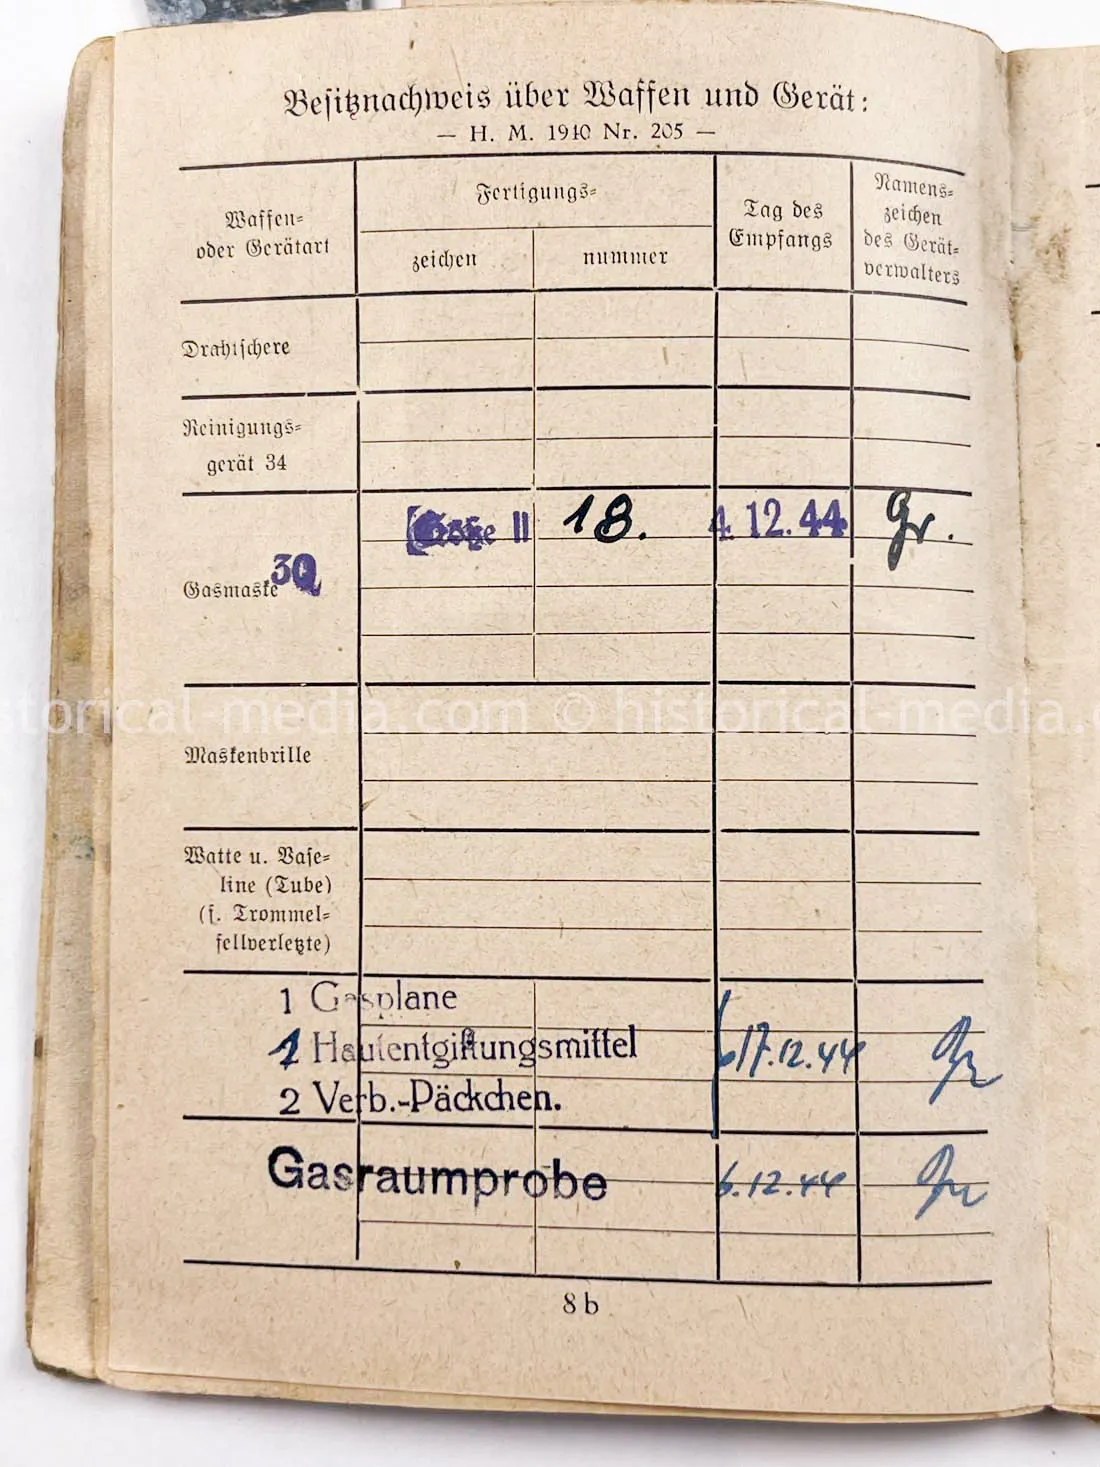 Besitznachweis über Waffen und Gerät:
— H. M. 1940 Nr. 205 —
Waffen-
oder Gerätart
Fertigungs-
zeichen
nummer
Tag des
Empfangs
Namens-
zeichen
des Gerät-
verwalters
Drahtschere
Reinigungs-
gerät 34
Gasmaske 30
II
18.
4.12.44
Gr.
Maskenbrille
Watte u. Vase-
line (Tube)
(f. Trommel-
fellverletzte)
1 Gasplane
1 Hautentgiftungsmittel
2 Verb.-Päckchen.
17.12.44
Gasraumprobe
6.12.44
8b
historical-media.com © historical-media.com